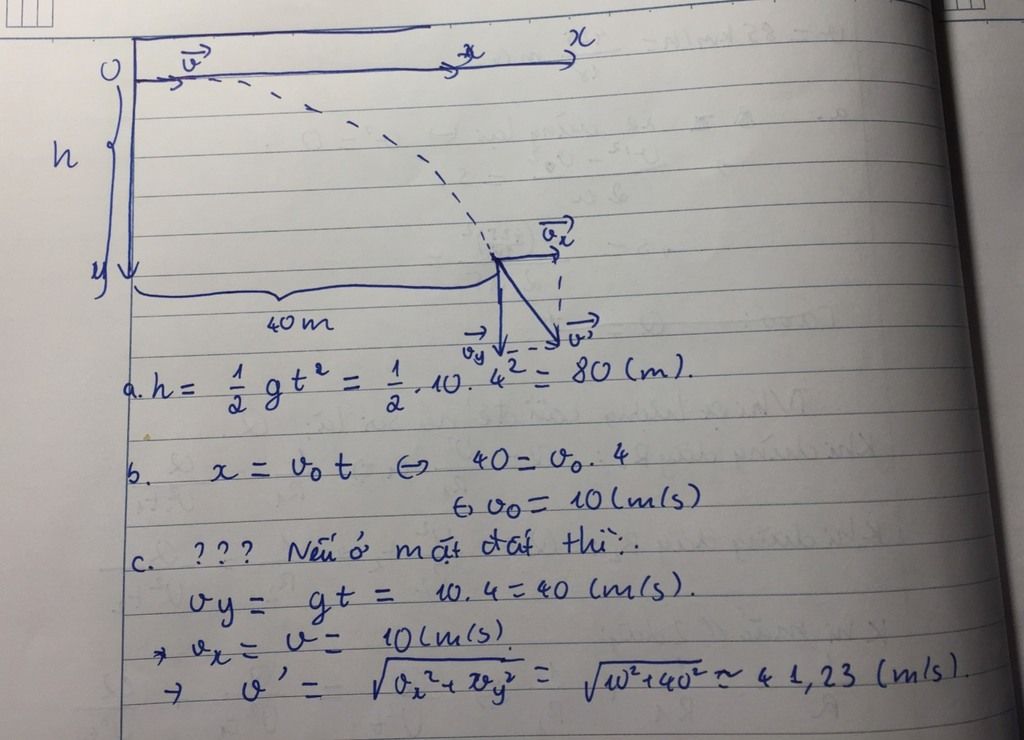 O
v⃗
x
x
h
y
40m
v⃗x
v⃗y
v⃗'
a. h = 1/2 gt² = 1/2 . 10 . 4² = 80 (m).
b. x = v₀t ⇔ 40 = v₀ . 4
⇔ v₀ = 10 (m/s)
c. ??? Nếu ở mặt đất thì:.
vy = gt = 10.4 = 40 (m/s).
→ vx = v = 10 (m/s).
→ v' = √(vx² + vy²) = √(10² + 40²) ≃ 41,23 (m/s).